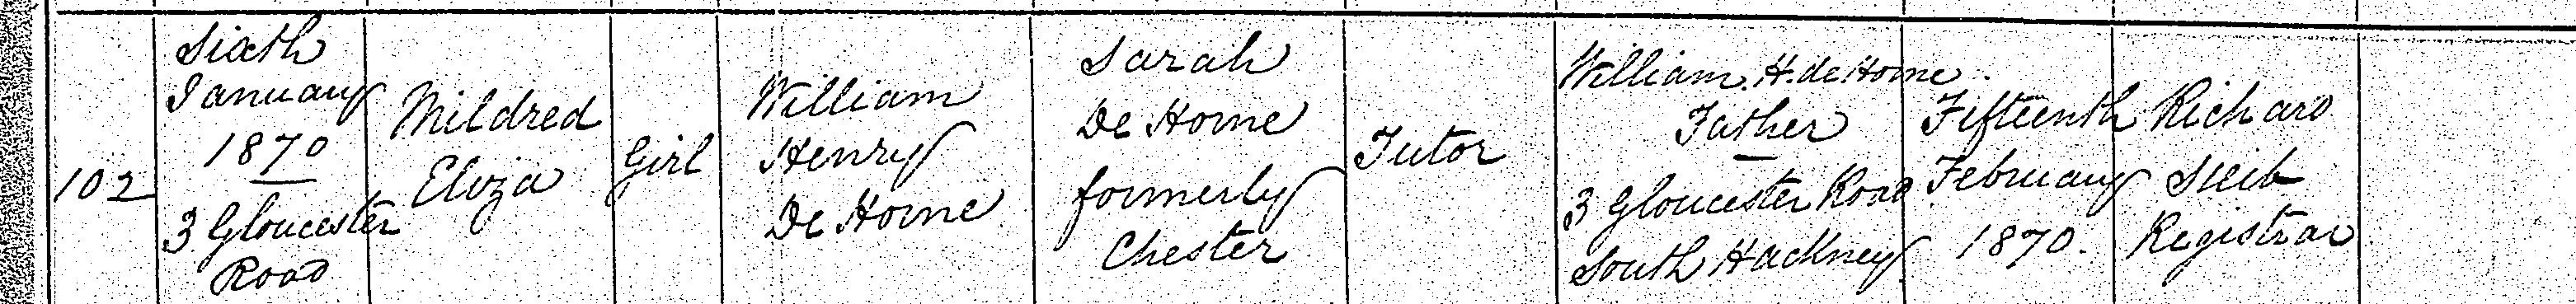 102
Sixth
January
1870
3 Gloucester
Road
Mildred
Eliza
Girl
William
Henry
De Horne
Sarah
De Horne
formerly
Chester
Tutor
William. H. de Horne.
Father
3 Gloucester Road
South Hackney
Fifteenth
February
1870.
Richard
Registrar